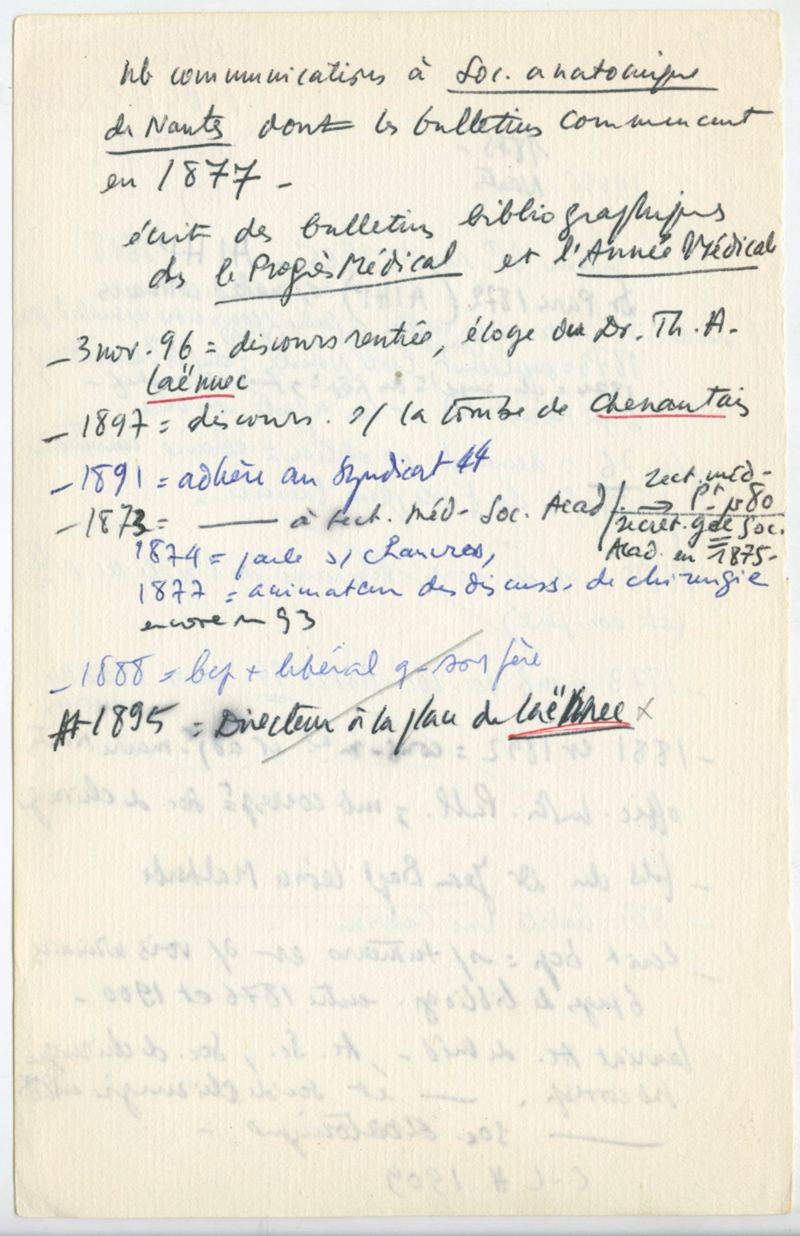 Nb communications à Soc. anatomique
de Nantes dont les bulletins commencent
en 1877 -
écrit des bulletins bibliographiques
ds le Progrès Médical et l'Année Médicale
- 3 nov. 96 = discours rentrée, éloge du Dr. Th. A.
Laënnec
- 1897 = discours. s/ la tombe de Chenantais
- 1891 = adhère au Syndicat 44
- 1873 = —— à sect. Méd- Soc. Acad / sect. méd-
→ Pt- js 80
secret. gal Soc.
Acad. en 1875-
1874 = parle s/ chancres,
1877 = animateur des discuss. de chirurgie
encore en 93
- 1888 = bcp + libéral q- son père
1895 = Directeur à la place de Laënnec x